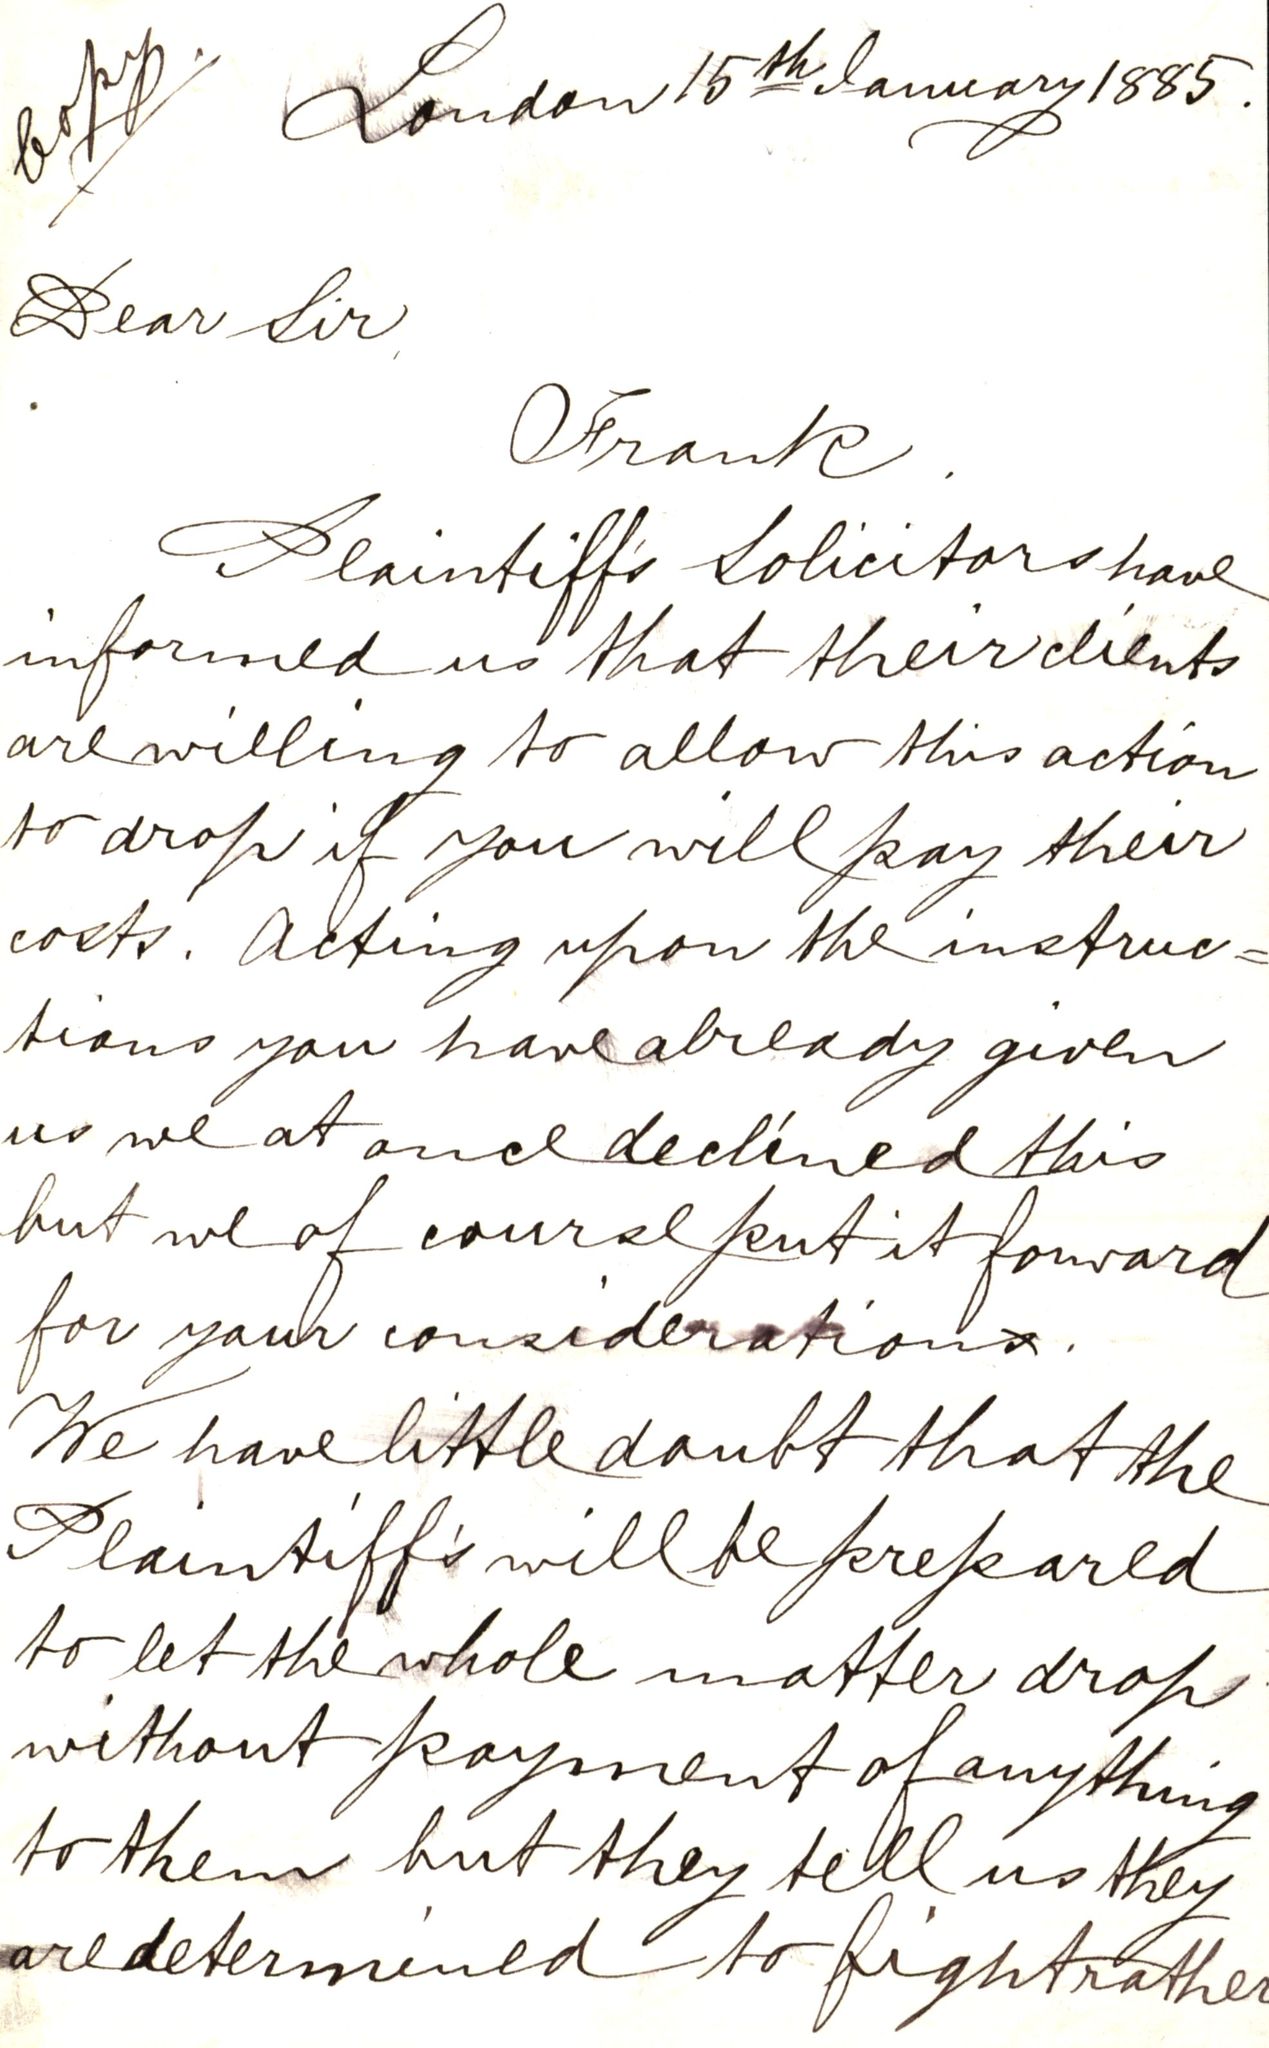 Copy.
London 15th January 1885.
Dear Sir,
Frank.
Plaintiff's Solicitors have
informed us that their clients
are willing to allow this action
to drop if you will pay their
costs. Acting upon the instruc=
tions you have already given
us we at once declined this
but we of course put it forward
for your considerations.
We have little doubt that the
Plaintiff's will be prepared
to let the whole matter drop
without payment of anything
to them but they tell us they
are determined to fight rather